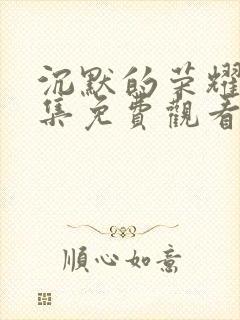 沉默的荣耀
集免費觀看
順心如意